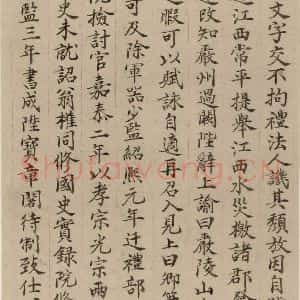 文字交不拘禮法人譏其頹放因自
遷江西常平提舉江西水災檄諸郡發
起知嚴州過闕陛辭上諭曰嚴陵山
暇可以賦詠自適再召入見上曰卿筆
可及除軍器少監紹熙元年遷禮部
院檢討官嘉泰二年以孝宗光宗兩
史未就詔翁權同修國史實錄院修
監三年書成陞寶章閣待制致仕
Shufawang.cn